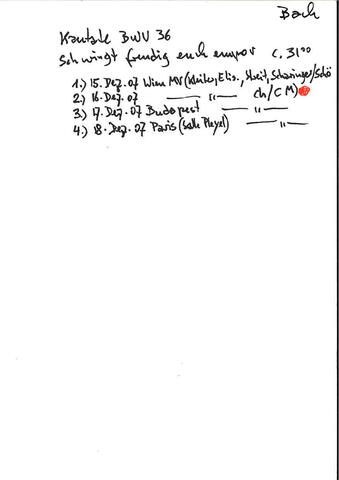 Bach
Kantate BWV 36
Schwingt freudig euch empor c. 31'00
1.) 15. Dez. 07 Wien MV (Kleiter, Elis., Streit, Scharinger/Schö
2.) 16. Dez. 07 —— " —— Ch/CM)
3.) 17. Dez. 07 Budapest —— " ——
4.) 18. Dez. 07 Paris (Salle Pleyel) —— " ——